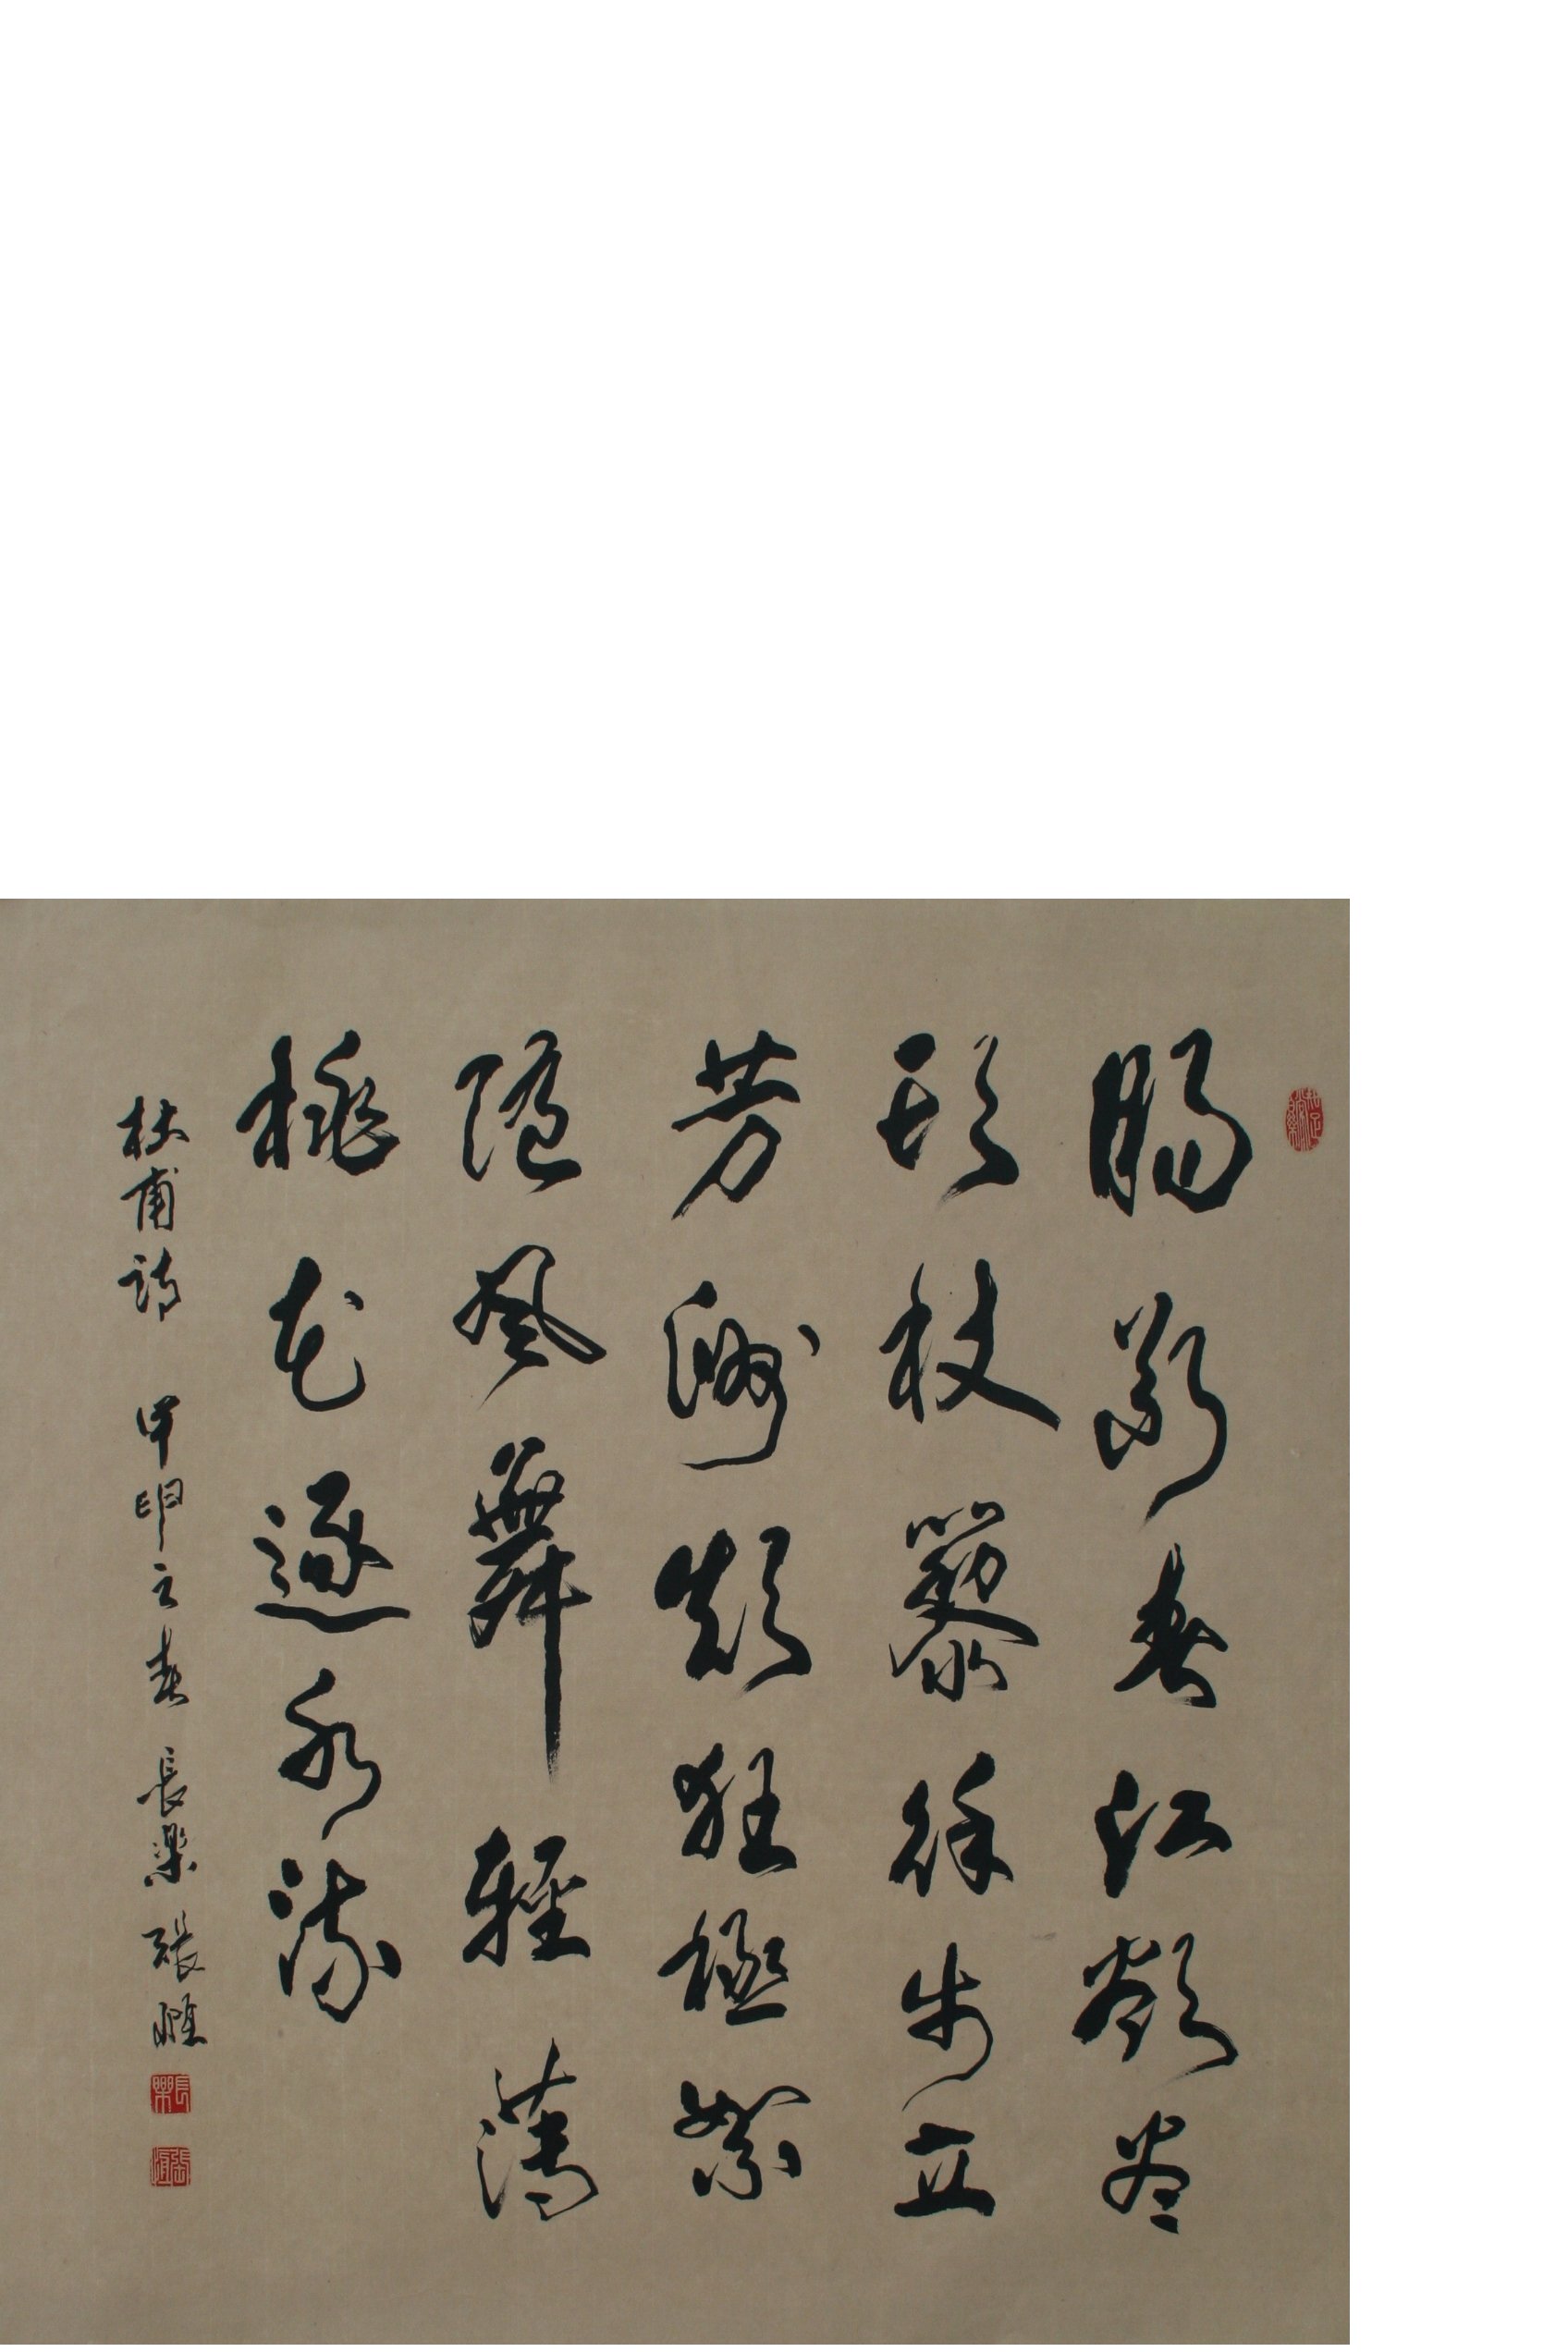 腸斷春江欲盡
頭杖藜徐步立
芳洲顛狂柳絮
隨風舞輕薄
桃花逐水流
杜甫詩 甲申之春 長樂 張
長樂